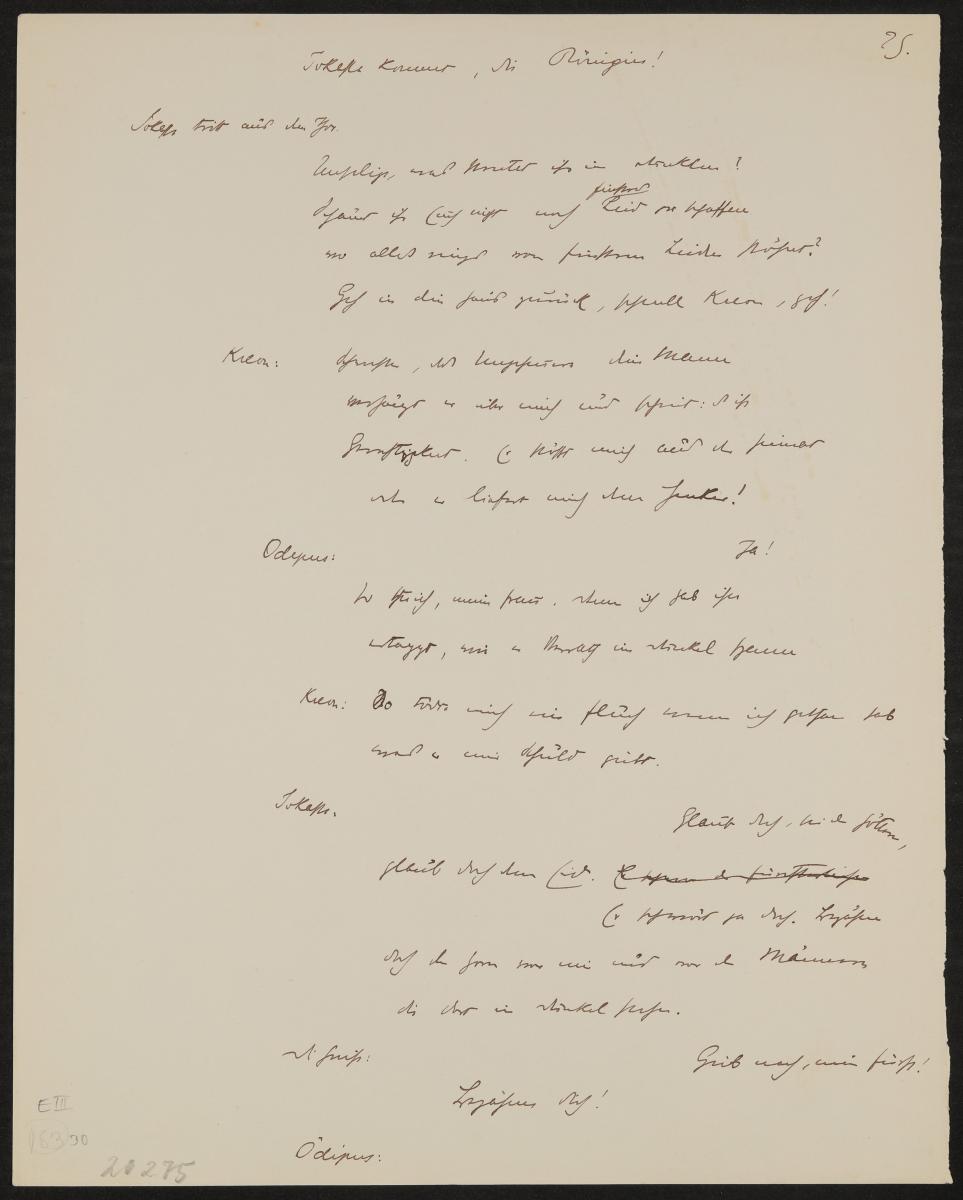 25.
Jokaste kommt, die Königin!
Jokaste tritt aus dem Tor.
Unselige, was streitet ihr im Dunklen?
finstres
Schämt ihr Euch nicht noch Leid zu schaffen
wo alles ringt von finstrem Leiden stöhnt?
Geh in dein Haus zurück, schnell Kreon, geh!
Kreon: Schwester, das Ungeheure dein Mann
verhängt er über mich und schreit: es ist
Gerechtigkeit. Er stößt mich aus der Heimat
oder er liefert mich dem Henker!
Ödipus: Ja!
So sprich, mein Frau. denn ich hab ihn
ertappt, wie er Verrath im Dunkel spann
Kreon: So tödte mich ein Fluch wenn ich gethan hab
was er mir Schuld giebt.
Jokaste. Glaub doch, bei den Göttern,
glaub doch dem Eid.
Er schwört ja doch. Bezähm
doch den Zorn vor mir und vor den Männern
die dort im Dunkel stehen.
Die Greise: Gieb nach, mein Fürst!
Bezähme dich!
Ödipus:
E III
183 30
20275